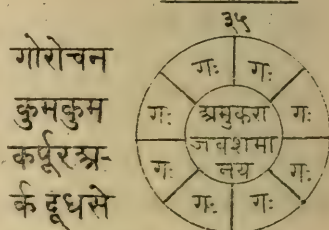 ३५
गोरोचन
कुमकुम
कर्पूरअ-
र्कदूधसे
गः गः
गः गः
गः गः
गः गः
अमुकरा
जवशमा
नय